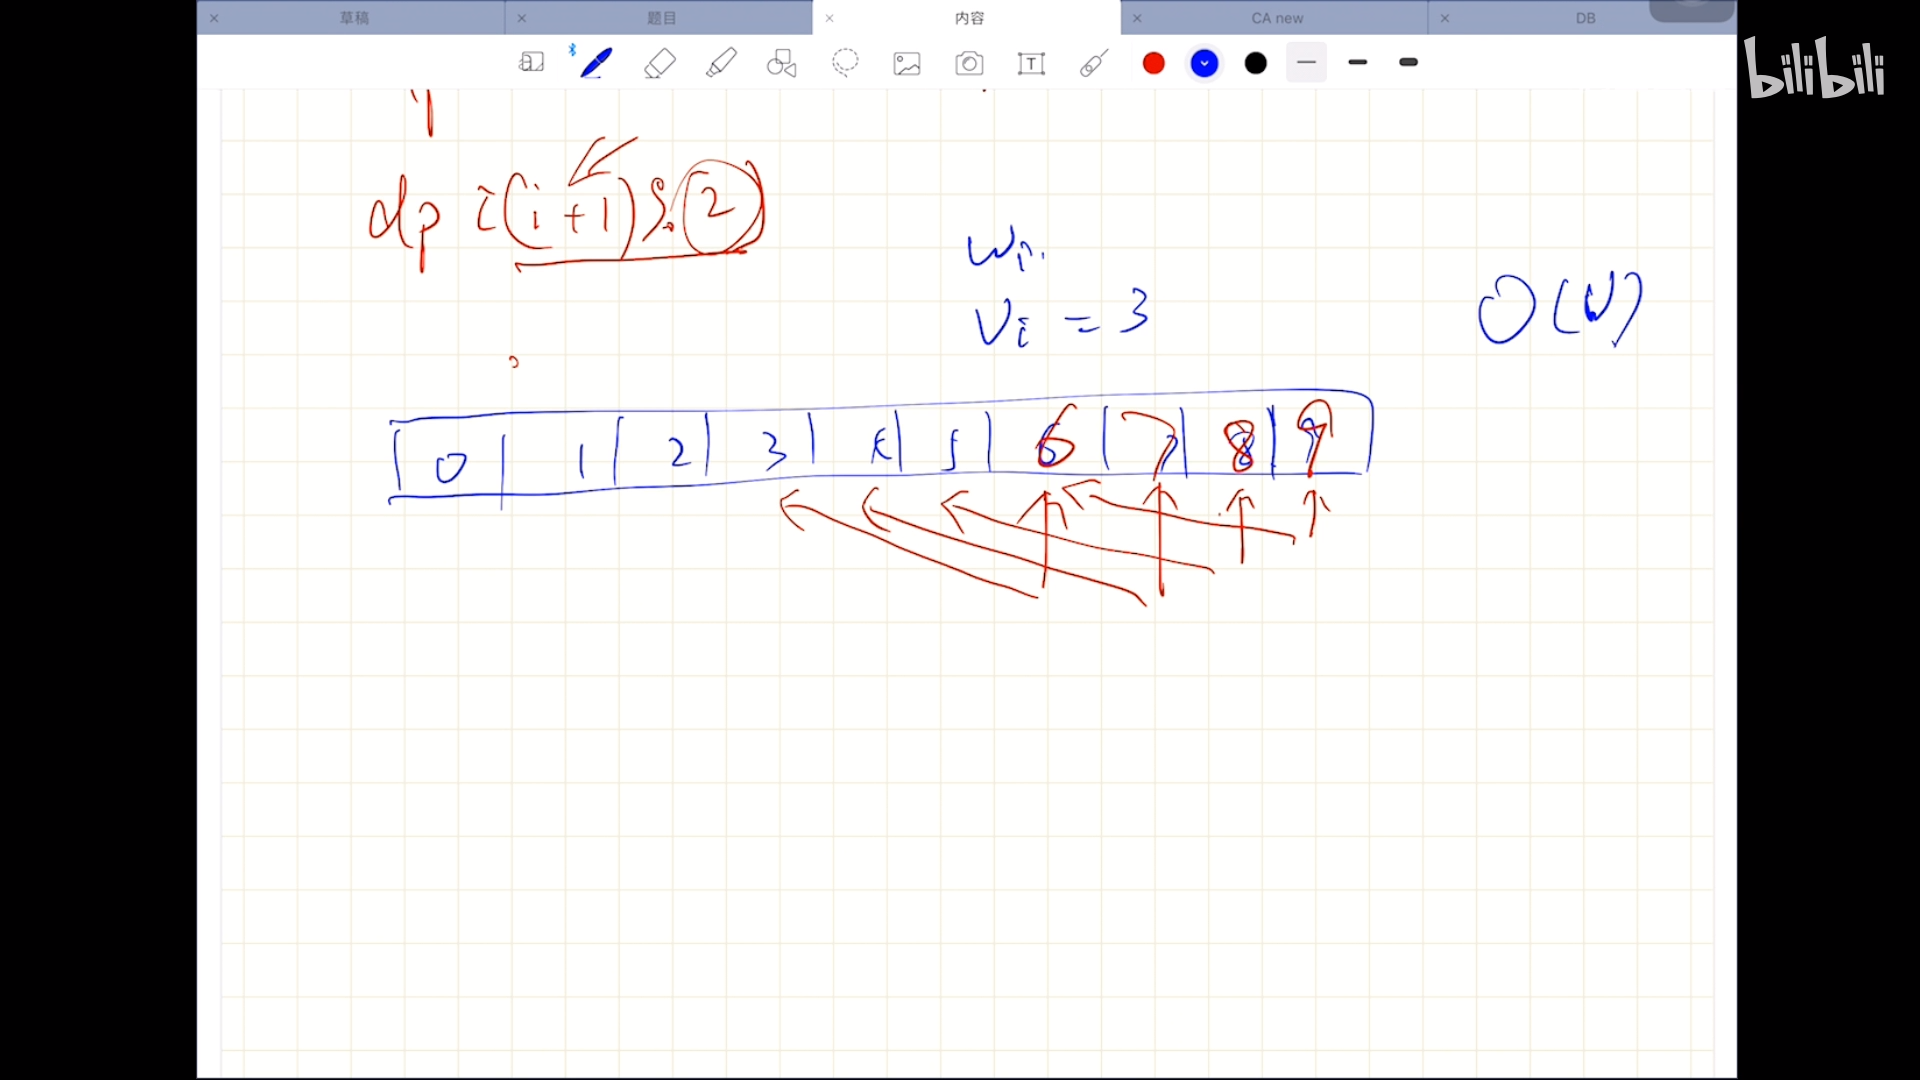 草稿 题目 内容 CA new DB
bilibili
T
dp i(i+1)%2
wi
vi = 3
O(W)
0 1 2 3 4 5 6 7 8 9